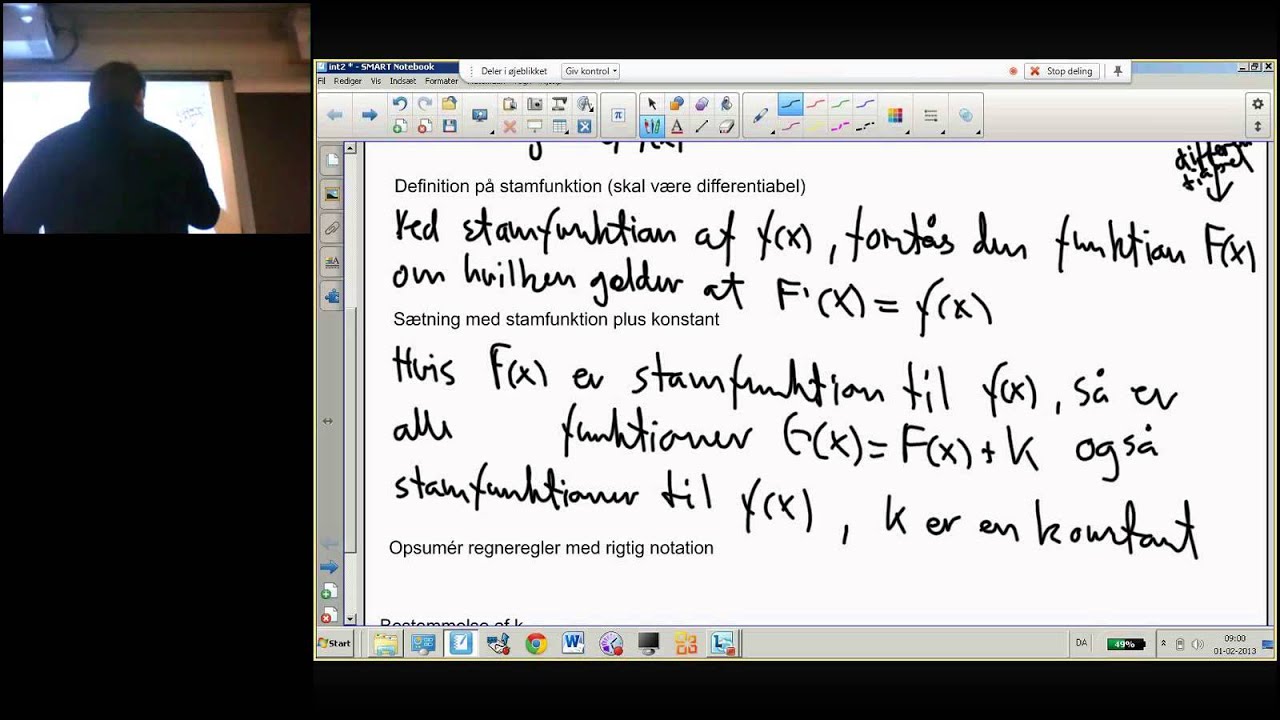 int2 * - SMART Notebook
Deler i øjeblikket
Giv kontrol
Stop deling
Fil Rediger Vis Indsæt Formater
Definition på stamfunktion (skal være differentiabel)
Ved stamfunktion af f(x), forstås den funktion F(x)
om hvilken gælder at F'(x) = f(x)
Sætning med stamfunktion plus konstant
Hvis F(x) er stamfunktion til f(x), så er
alle funktioner G(x) = F(x) + k også
stamfunktioner til f(x), k er en konstant
Opsumér regneregler med rigtig notation
Bestemmelse af k
Start
DA
49%
09:00
01-02-2013